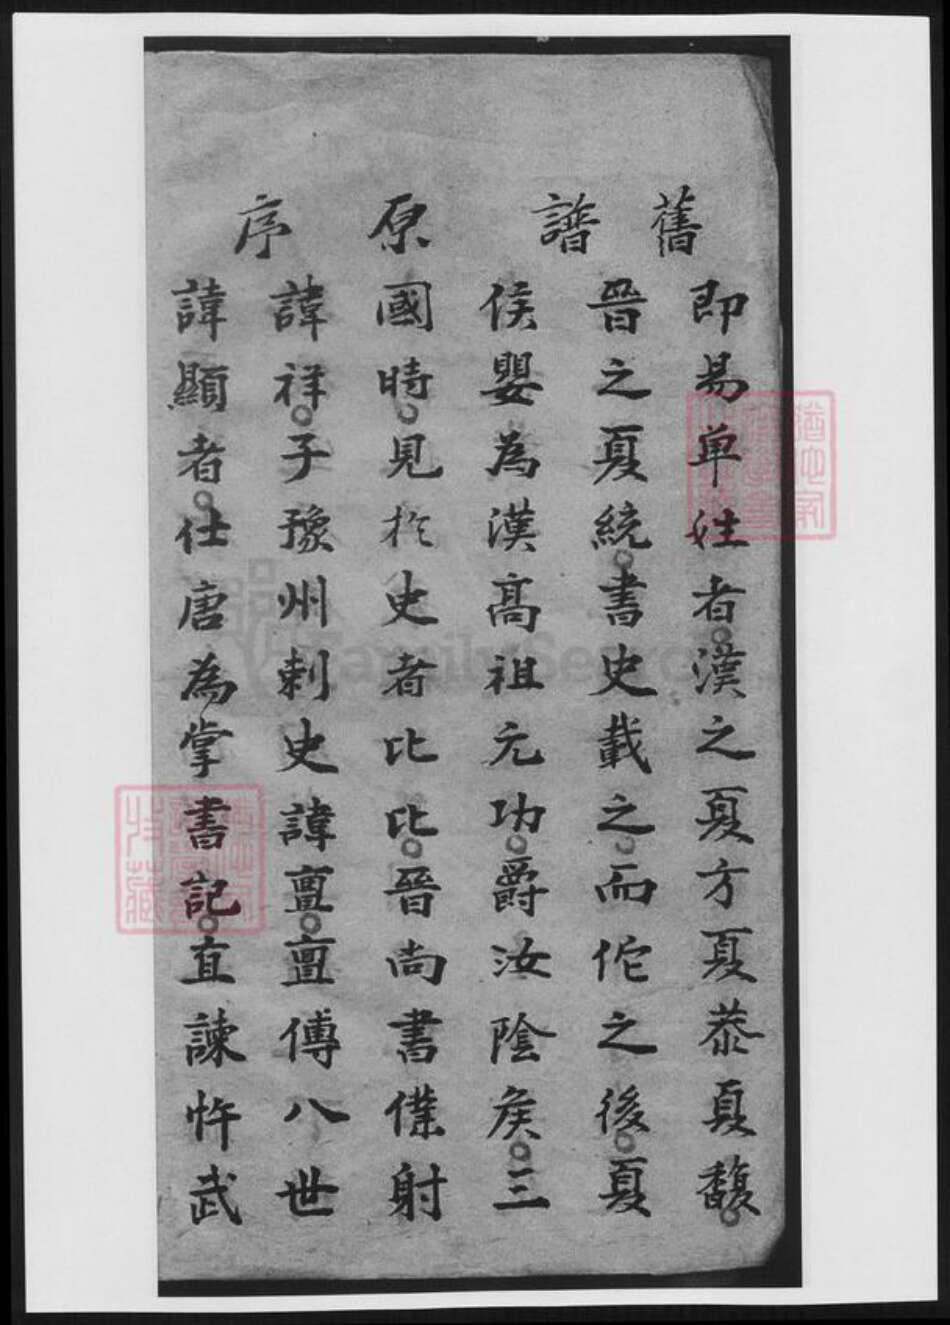 舊譜原序
即易单姓者。漢之夏方夏恭夏馥。
晉之夏統。書史載之。而佗之後。夏
侯嬰為漢高祖元功。爵汝陰矦。三
國時。見於史者比比。晉尚書僕射
諱祥。子豫州刺史諱亶。亶傅八世
諱顯者。仕唐為掌書記。直諫忤武
FamilySearch